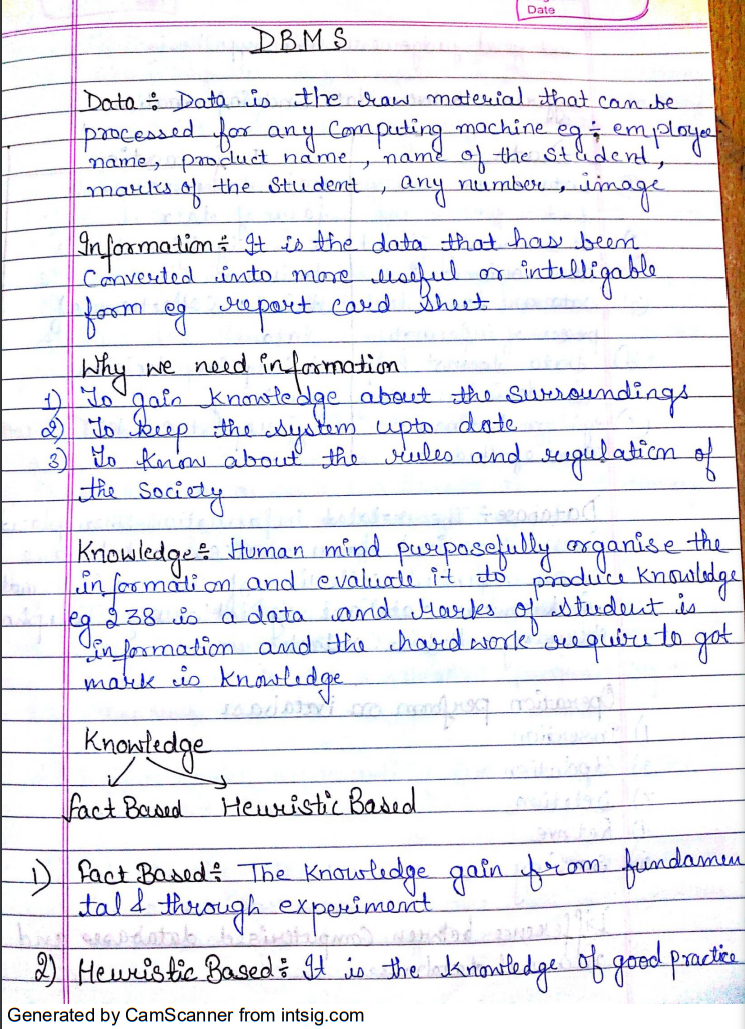 Date
DBMS
Data ÷ Data is the raw material that can be
processed for any Computing machine eg ÷ employee
name, product name, name of the student,
marks of the student, any number, image
Information ÷ It is the data that has been
Converted into more useful or intelligable
form eg report card sheet
Why we need information
1) To gain knowledge about the surroundings
2) To keep the system upto date
3) To know about the rules and regulation of
the society
Knowledge ÷ Human mind purposefully organise the
information and evaluate it to produce knowledge
eg 238 is a data and Marks of student is
information and the hard work require to got
mark is knowledge
Knowledge
fact Based Heuristic Based
1) fact Based ÷ The Knowledge gain from fundamen
tal & through experiment
2) Heuristic Based ÷ It is the knowledge of good practice
Generated by CamScanner from intsig.com